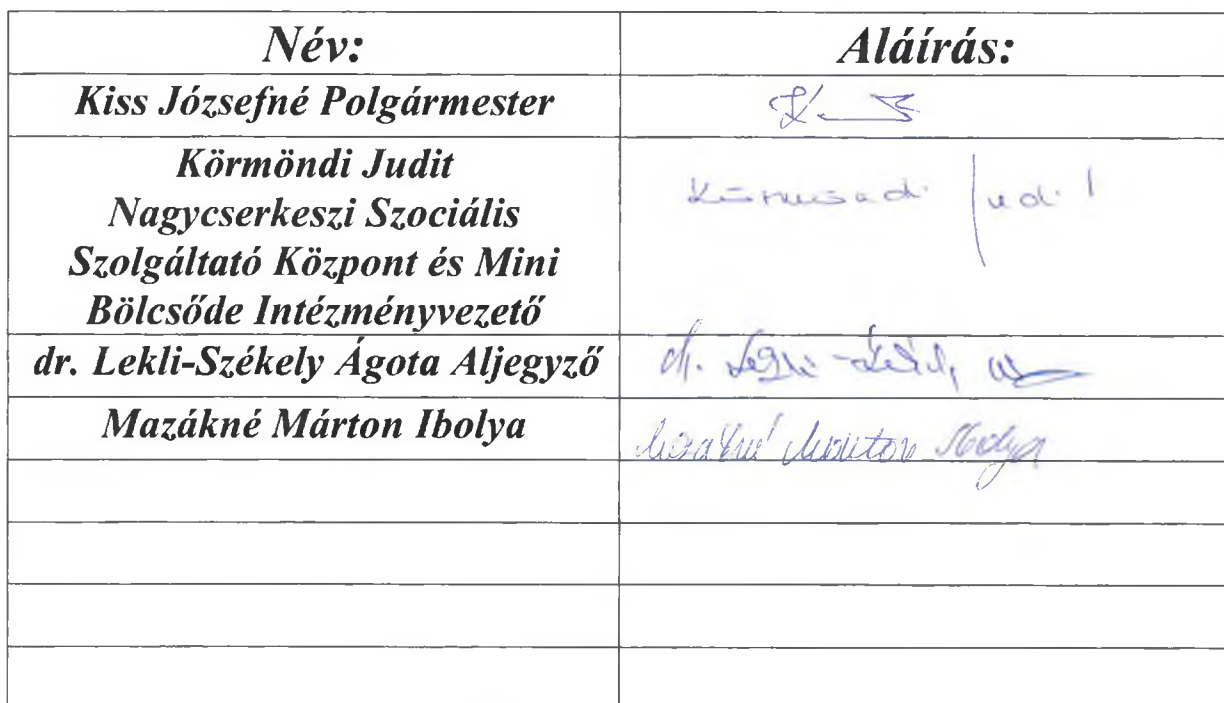 Név: Aláírás:
Kiss Józsefné Polgármester
Körmöndi Judit
Nagycserkeszi Szociális
Szolgáltató Központ és Mini
Bölcsőde Intézményvezető
Körmöndi Judit
dr. Lekli-Székely Ágota Aljegyző dr. Lekli-Székely
Mazákné Márton Ibolya Mazákné Márton Ibolya